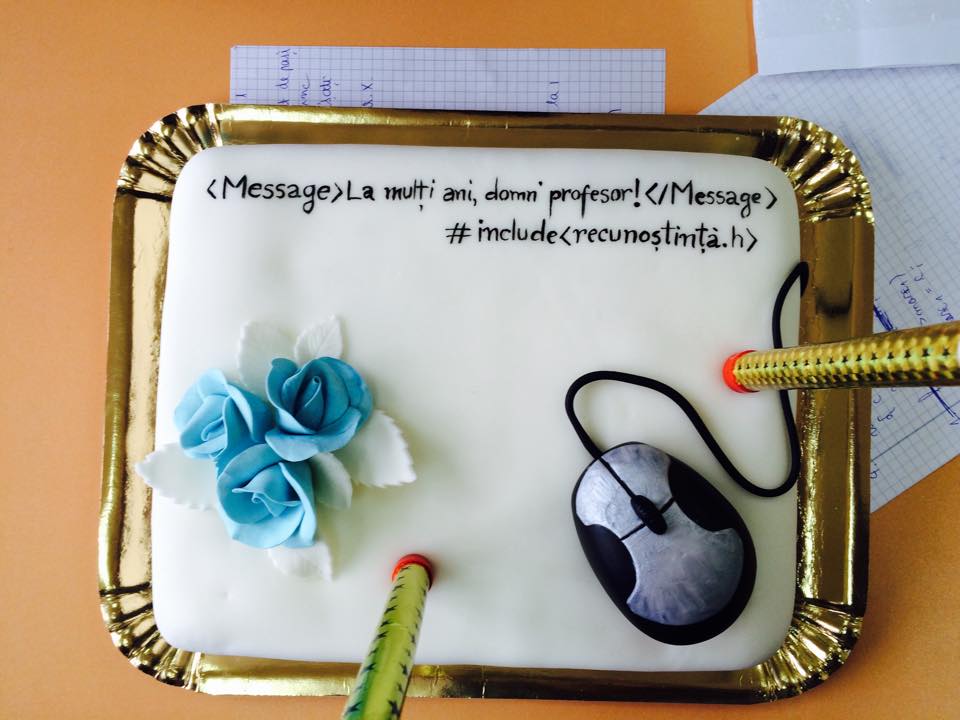 <Message>La mulți ani, domn' profesor!</Message>
#include<recunoștință.h>
de pași
la 1